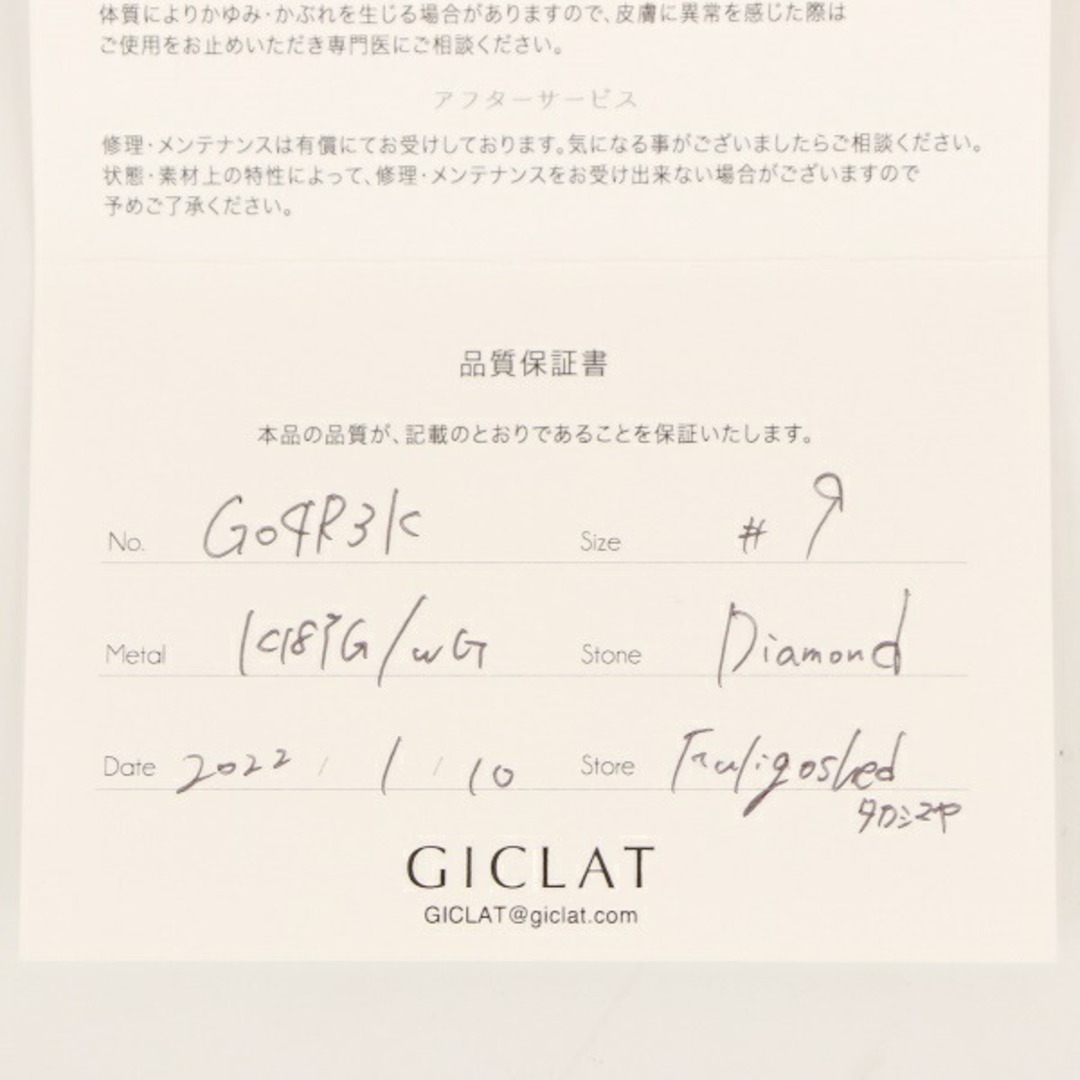 体質によりかゆみ・かぶれを生じる場合がありますので、皮膚に異常を感じた際は
ご使用をお止めいただき専門医にご相談ください。
アフターサービス
修理・メンテナンスは有償にてお受けしております。気になる事がございましたらご相談ください。
状態・素材上の特性によって、修理・メンテナンスをお受け出来ない場合がございますので
予めご了承ください。
品質保証書
本品の品質が、記載のとおりであることを保証いたします。
No. G04R3K Size # 9
Metal K18YG/WG Stone Diamond
Date 2022 / 1 / 10 Store
タカシマヤ
GICLAT
GICLAT@giclat.com